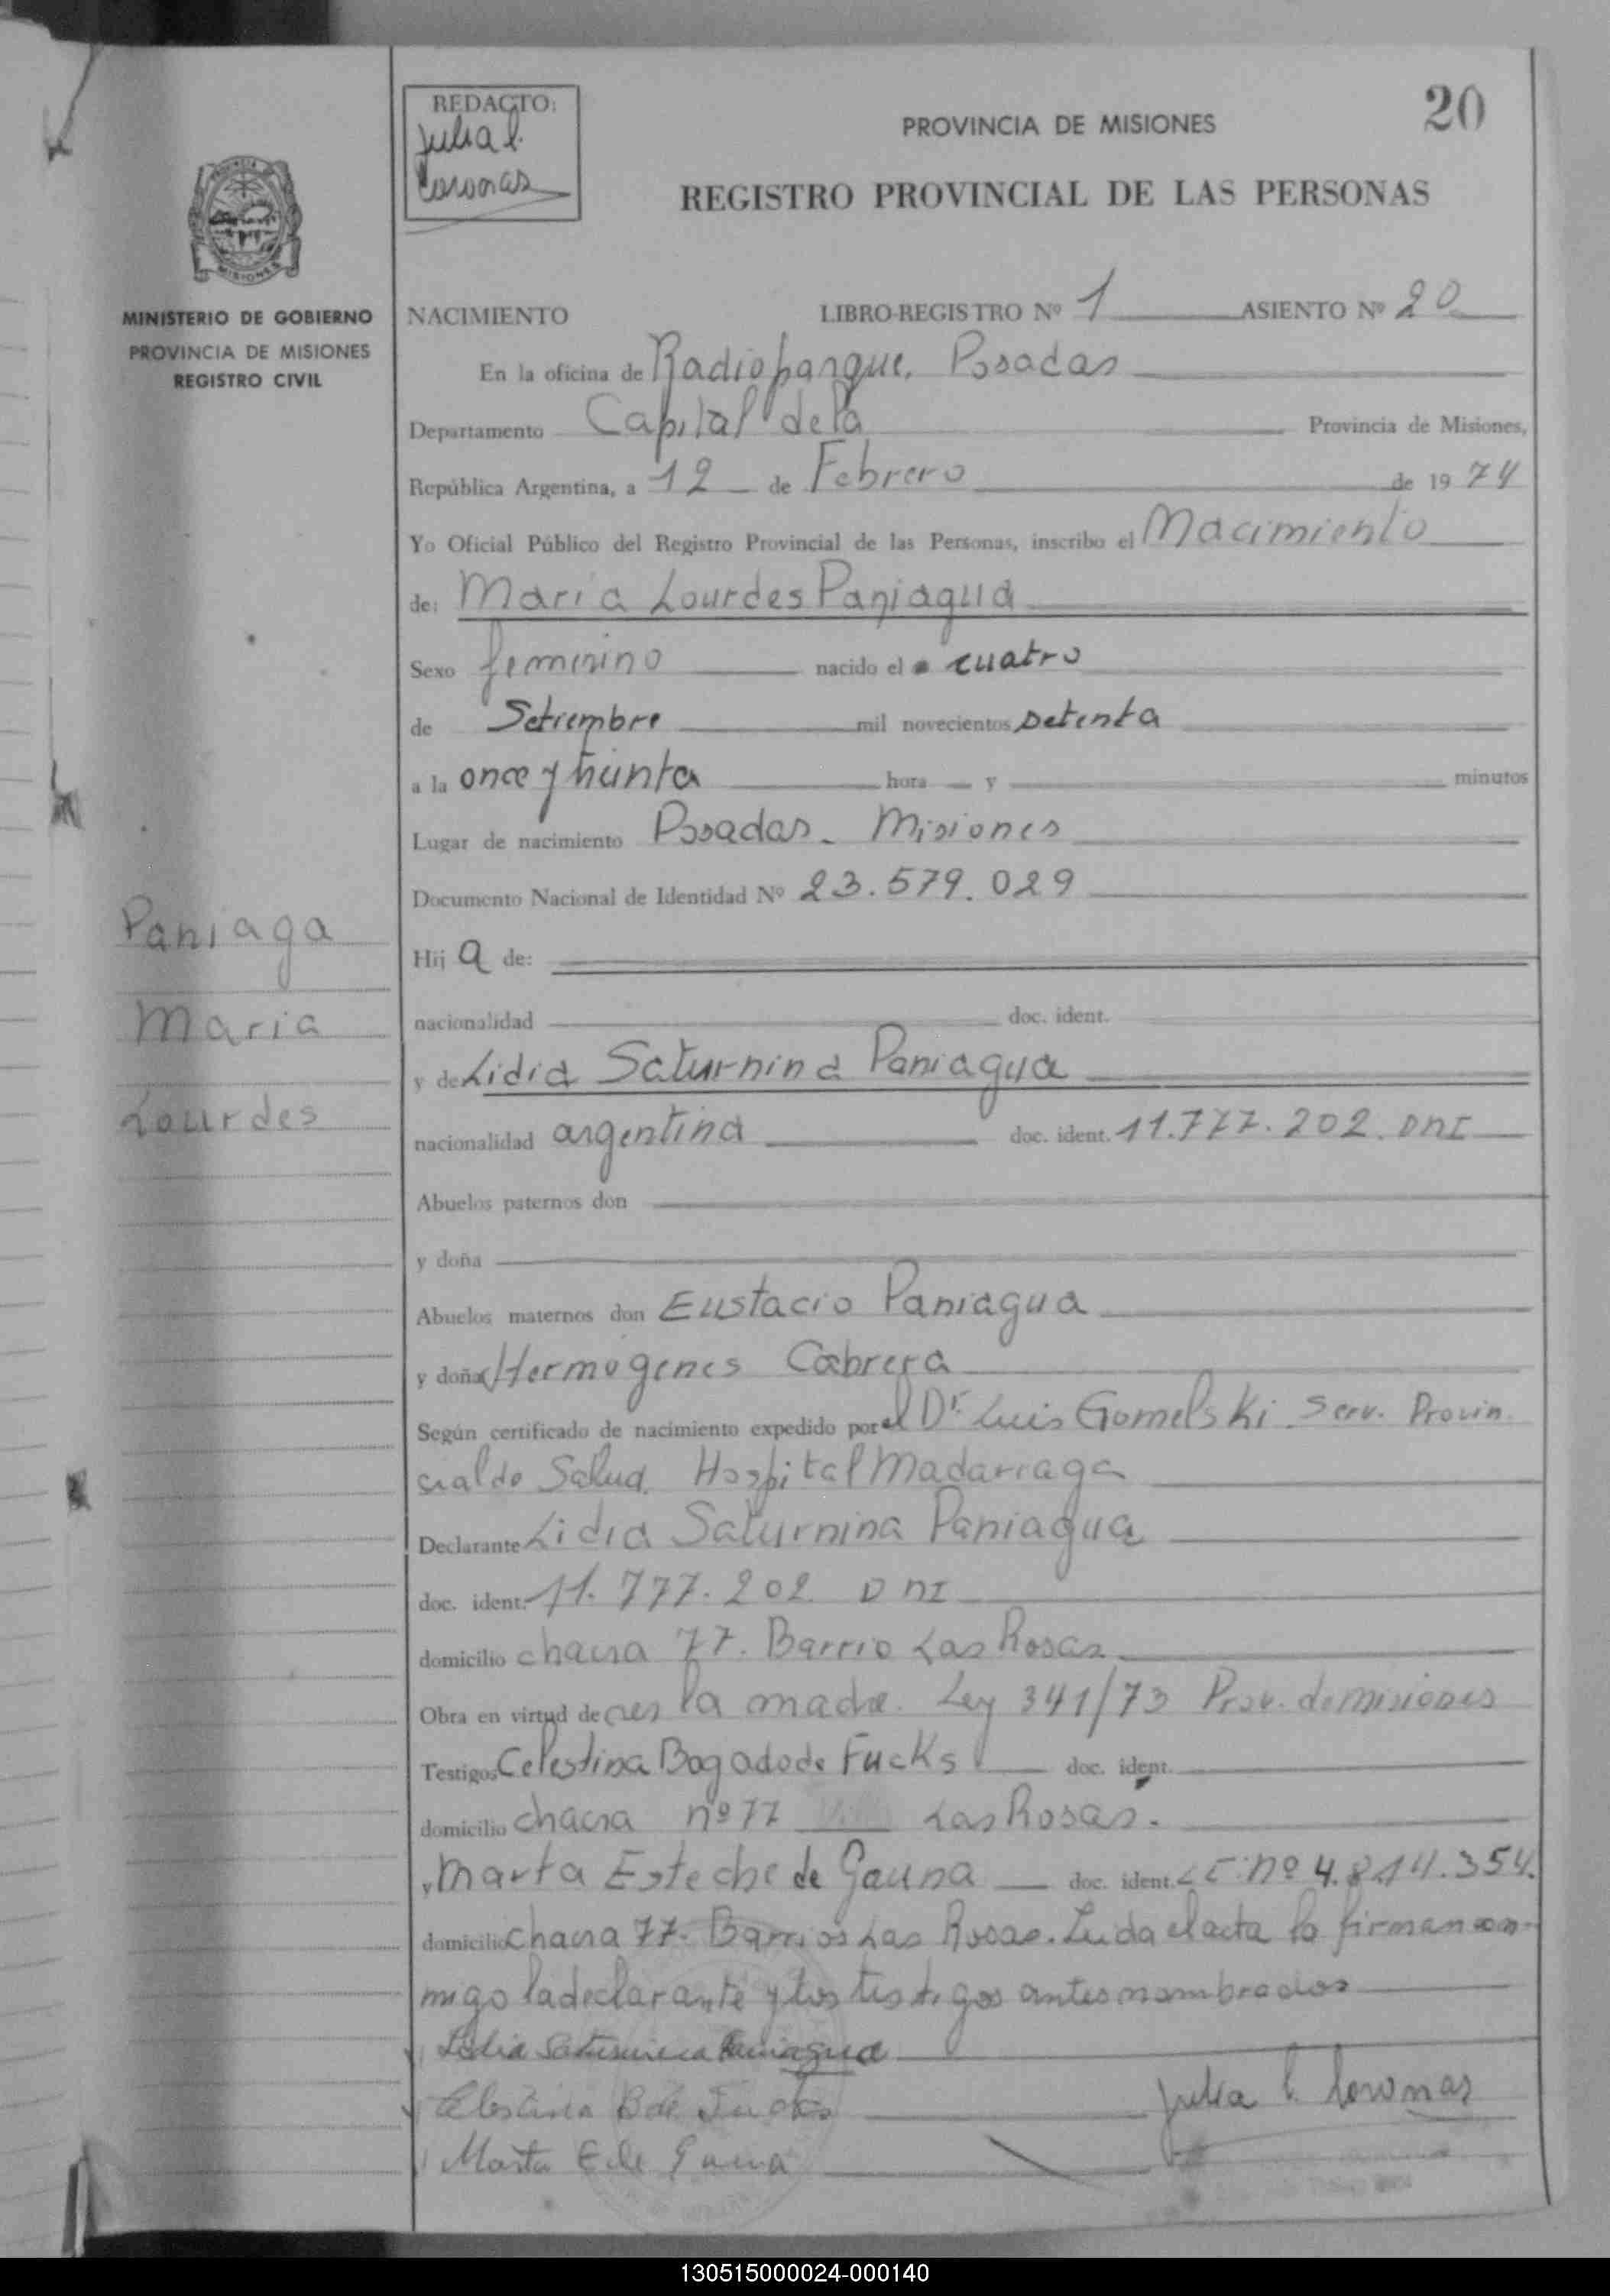 20
REDACTO:
Julia l.
Coronas
PROVINCIA DE MISIONES
REGISTRO PROVINCIAL DE LAS PERSONAS
MISIONES
MINISTERIO DE GOBIERNO
PROVINCIA DE MISIONES
REGISTRO CIVIL
NACIMIENTO LIBRO-REGISTRO Nº 1 ASIENTO Nº 20
En la oficina de Radioparque. Posadas
Departamento Capital de la Provincia de Misiones,
República Argentina, a 12 de Febrero de 1974
Yo Oficial Público del Registro Provincial de las Personas, inscribo el Nacimiento
de: Maria Lourdes Paniagua
Sexo femenino nacido el cuatro
de Setiembre mil novecientos setenta
a la once y treinta hora y minutos
Lugar de nacimiento Posadas. Misiones
Documento Nacional de Identidad Nº 23.579.029
Paniaga
Maria
Lourdes
Hija de:
nacionalidad doc. ident.
y de Lidia Saturnina Paniagua
nacionalidad argentina doc. ident. 11.777.202. DNI
Abuelos paternos don
y doña
Abuelos maternos don Eustacio Paniagua
y doña Hermogenes Cabrera
Según certificado de nacimiento expedido por el Dr. Luis Gomelski Serv. Provin
cial de Salud. Hospital Madarraga
Declarante Lidia Saturnina Paniagua
doc. ident. 11.777.202. DNI
domicilio chacra 77. Barrio Las Rosas
Obra en virtud de ser la madre. Ley 341/73 Prov. de misiones
Testigos Celestina Bogado de Fucks doc. ident.
domicilio chacra nº 77 Las Rosas.
y Marta Esteche de Gauna doc. ident. LC. nº 4.814.354.
domicilio chacra 77. Barrios Las Rosas. Leida el acta la firman con-
migo la declarante y los testigos antes nombrados
Lidia Saturnina Paniagua
Celestina B de Fucks Julia l. Coronas
Marta E de Gauna
130515000024-000140